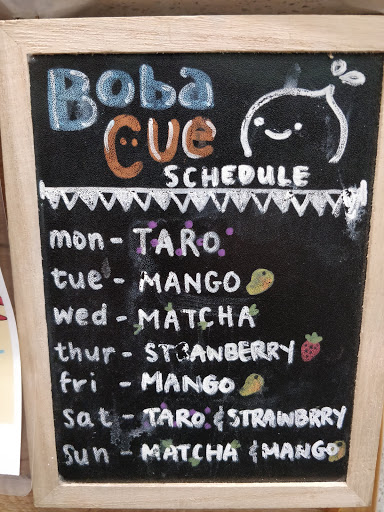 Boba
Cue
SCHEDULE
mon - TARO
tue - MANGO
wed - MATCHA
thur - STRAWBERRY
fri - MANGO
sat - TARO & STRAWBRRY
sun - MATCHA & MANGO